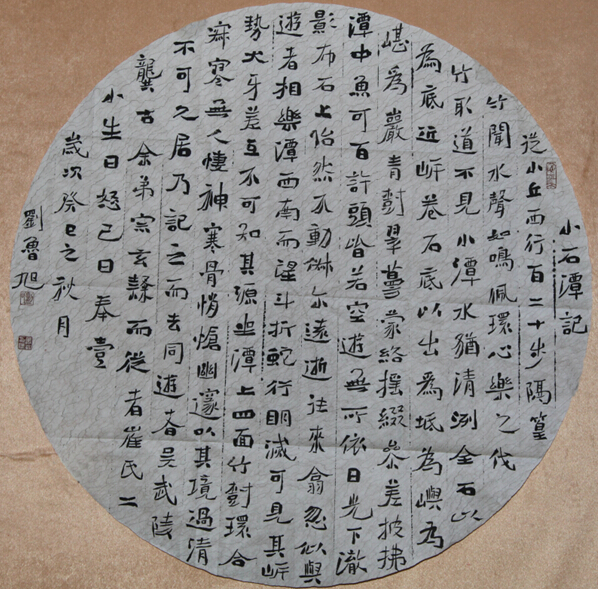 小石潭記
從小丘西行百二十步隔篁
竹聞水聲如鳴佩環心樂之伐
竹取道不見小潭水猶清洌全石以
為底近岸卷石底以出為坻為嶼為
嵁為巖青樹翠蔓蒙絡搖綴參差披拂
潭中魚可百許頭皆若空遊無所依日光下澈
影布石上怡然不動俶尔遠逝往來翕忽似與
遊者相樂潭西南而望斗折蛇行明滅可見其岸
勢犬牙差互不可知其源坐潭上四面竹樹環合
寂寥無人悽神寒骨悄愴幽邃以其境過清
不可久居乃記之而去同遊者吳武陵
龔古余弟宗玄隸而從者崔氏二
小生曰恕己曰奉壹
歲次癸巳之秋月
劉魯旭